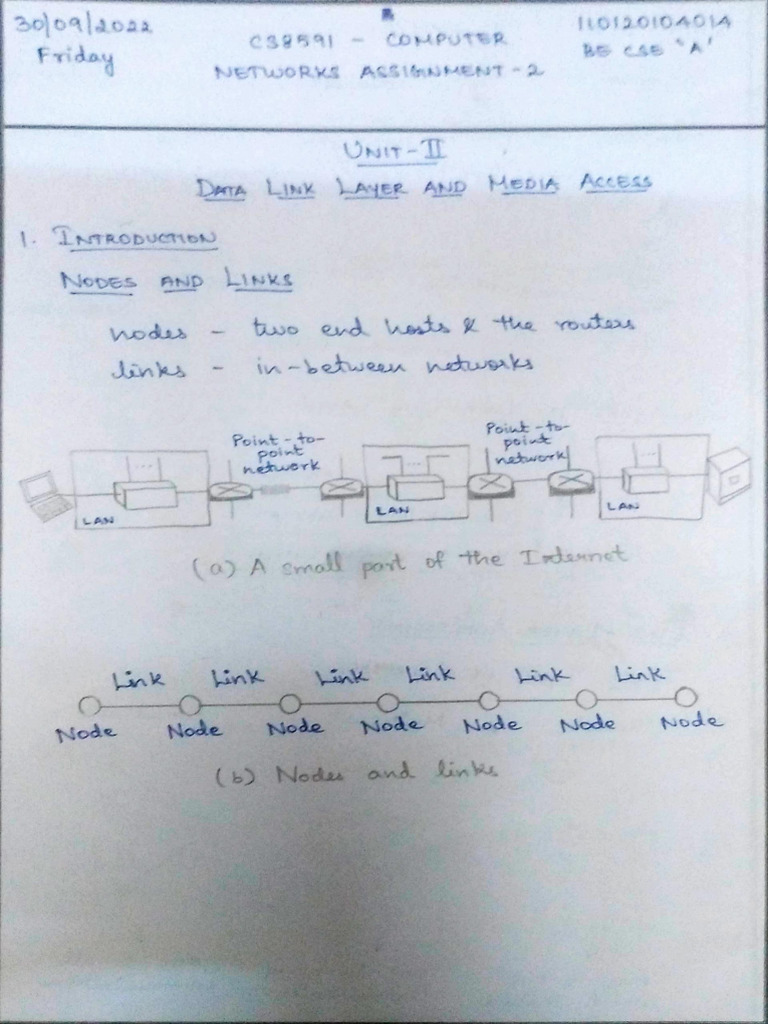 30/09/2022
Friday
CS8591 - COMPUTER
NETWORKS ASSIGNMENT - 2
110120104014
BE CSE 'A'
UNIT - II
DATA LINK LAYER AND MEDIA ACCESS
1. INTRODUCTION
NODES AND LINKS
nodes - two end hosts & the routers
links - in-between networks
Point-to-
point
network
Point-to-
point
network
LAN
LAN
LAN
(a) A small part of the Internet
Link Link Link Link Link Link
Node Node Node Node Node Node Node
(b) Nodes and links